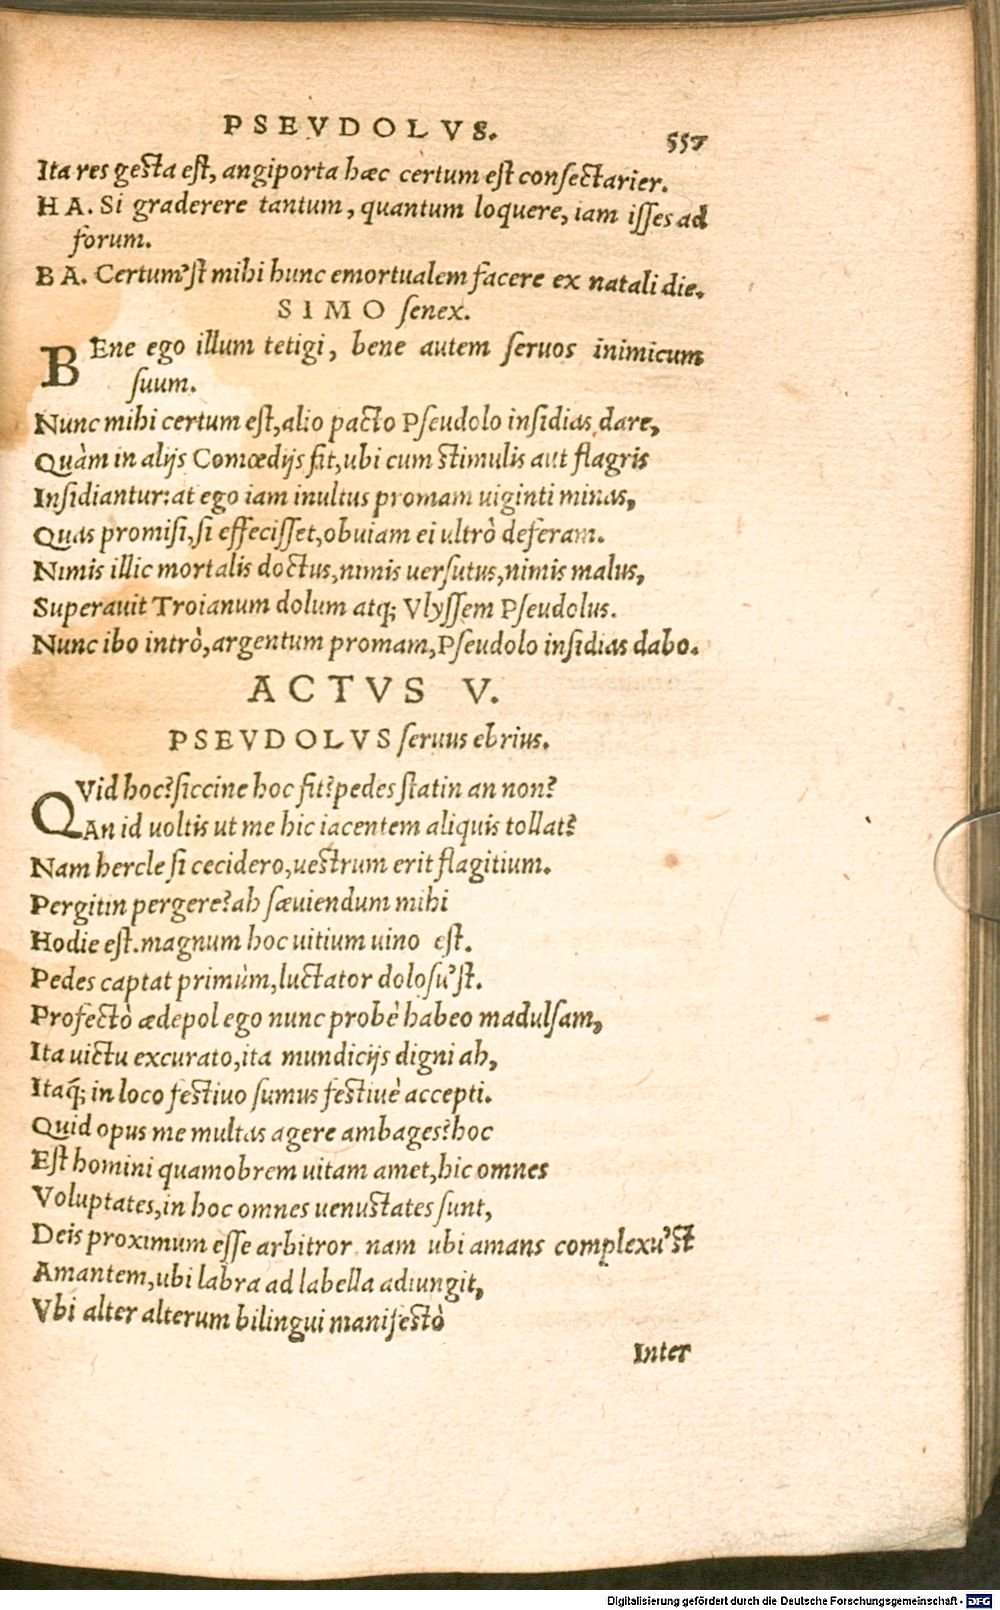 PSEVDOLVS.
557
Ita res gesta est, angiporta hæc certum est consectarier.
HA. Si graderere tantum, quantum loquere, iam isses ad
forum.
BA. Certum'st mihi hunc emortualem facere ex natali die.
SIMO senex.
BEne ego illum tetigi, bene autem seruos inimicum
suum.
Nunc mihi certum est, alio pacto Pseudolo insidias dare,
Quàm in alijs Comœdijs fit, ubi cum stimulis aut flagris
Insidiantur: at ego iam inultus promam uiginti minas,
Quas promisi, si effecisset, obuiam ei ultrò deferam.
Nimis illic mortalis doctus, nimis uersutus, nimis malus,
Superauit Troianum dolum atq; Vlyssem Pseudolus.
Nunc ibo intrò, argentum promam, Pseudolo insidias dabo.
ACTVS V.
PSEVDOLVS seruus ebrius.
QVid hoc? siccine hoc fit? pedes statin an non?
An id uoltis ut me hic iacentem aliquis tollat?
Nam hercle si cecidero, uestrum erit flagitium.
Pergitin pergere? ah sæuiendum mihi
Hodie est. magnum hoc uitium uino est.
Pedes captat primùm, luctator dolosu'st.
Profectò ædepol ego nunc probè habeo madulsam,
Ita uictu excurato, ita mundicijs digni ah,
Itaq; in loco festiuo sumus festiuè accepti.
Quid opus me multas agere ambages? hoc
Est homini quamobrem uitam amet, hic omnes
Voluptates, in hoc omnes uenustates sunt,
Deis proximum esse arbitror. nam ubi amans complexu'st
Amantem, ubi labra ad labella adiungit,
Vbi alter alterum bilingui manifestò
Inter
Digitalisierung gefördert durch die Deutsche Forschungsgemeinschaft - DFG